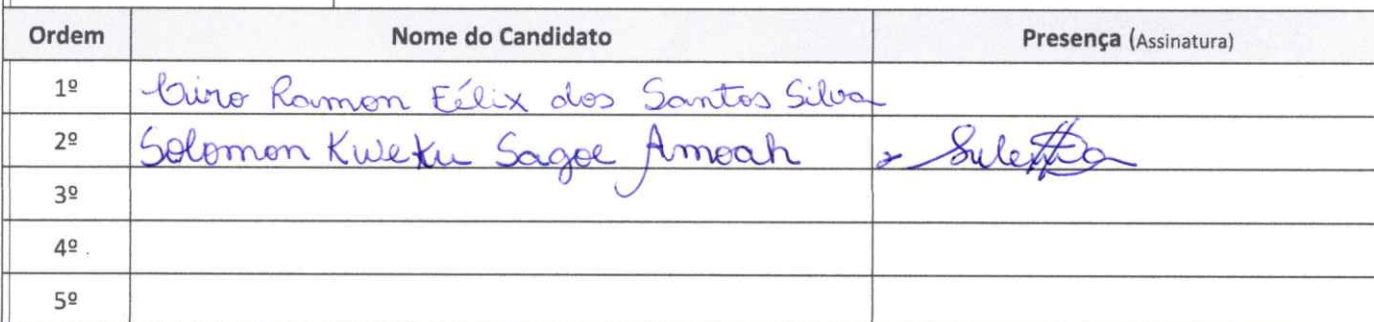 Ordem Nome do Candidato Presença (Assinatura)
1º Ramon Félix dos Santos Silva
2º Solomon Kweku Sagoe Amoah
3º
4º
5º